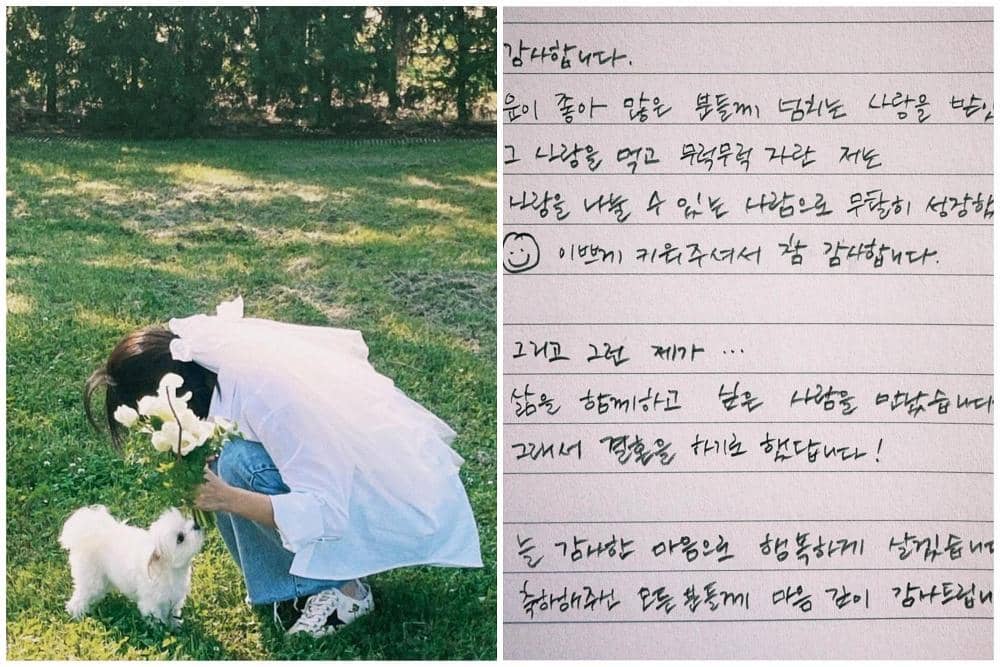 감사합니다.
운이 좋아 많은 분들께 넘치는 사랑을
그 사랑을 먹고 무럭무럭 자란 저는
사랑을 나눌 수 있는 사람으로 무탈히
이쁘게 키워주셔서 참 감사합니다.
그리고 그런 제가 ...
삶을 함께하고 싶은 사람을 만났습니다
그래서 결혼을 하기로 했답니다!
는 감사한 마음으로 행복하게 살겠습니다
축하해주신 모든 분들께 마음 깊이